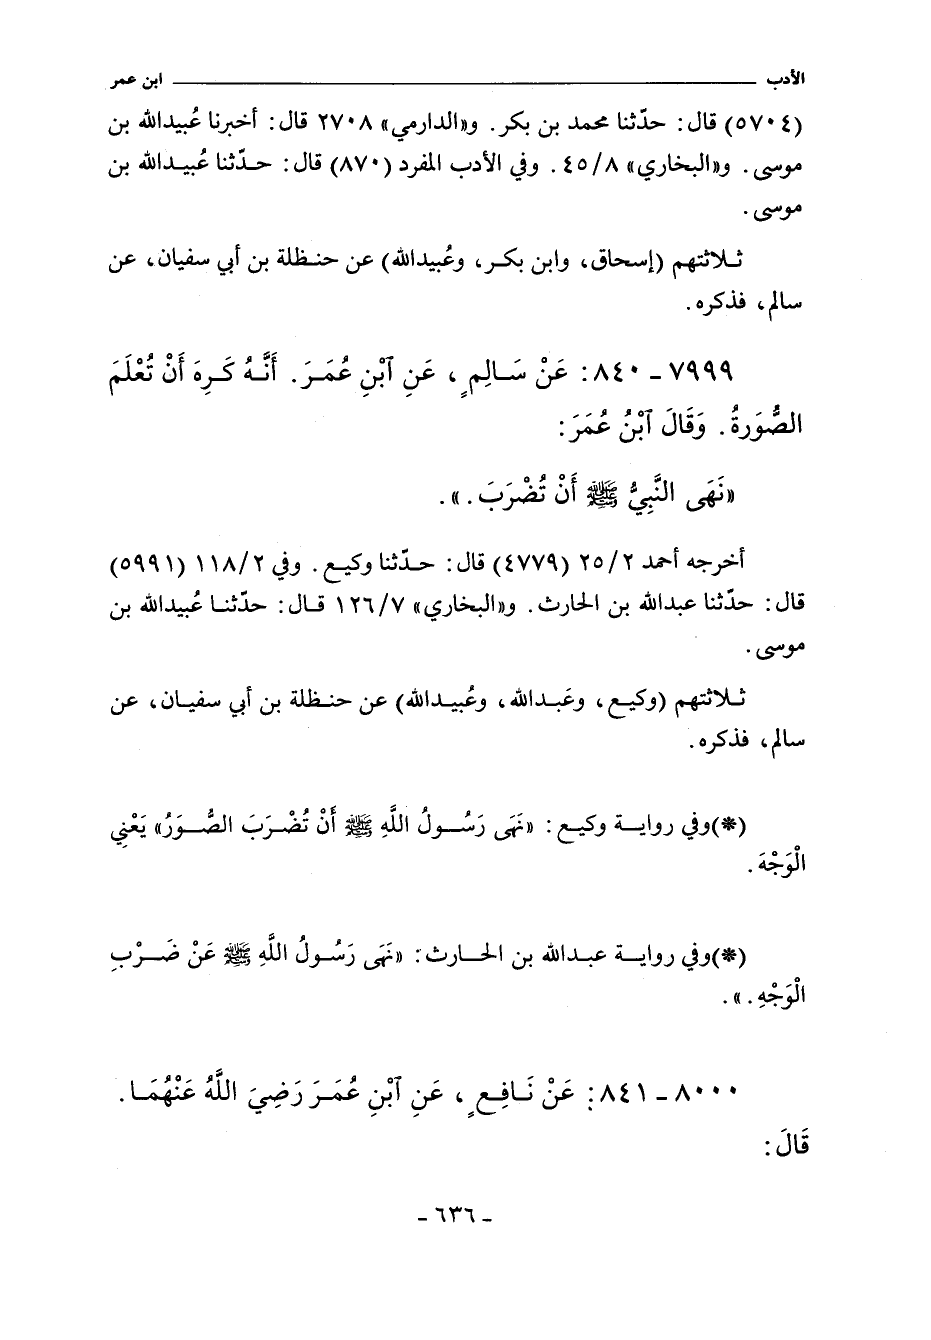 الأدب ابن عمر
(٥٧٠٤) قال: حدّثنا محمد بن بكر. و«الدارمي» ٢٧٠٨ قال: أخبرنا عُبيدالله بن
موسى. و«البخاري» ٤٥/٨. وفي الأدب المفرد (٨٧٠) قال: حدّثنا عُبيدالله بن
موسى.
ثلاثتهم (إسحاق، وابن بكر، وعُبيدالله) عن حنظلة بن أبي سفيان، عن
سالم، فذكره.
٧٩٩٩ - ٨٤٠: عَنْ سَالِمٍ، عَنِ ٱبْنِ عُمَرَ. أَنَّهُ كَرِهَ أَنْ تُعْلَمَ
الصُّورَةُ. وَقَالَ ٱبْنُ عُمَرَ:
«نَهَى النَّبِيُّ ﷺ أَنْ تُضْرَبَ.».
أخرجه أحمد ٢٥/٢ (٤٧٧٩) قال: حدّثنا وكيع. وفي ١١٨/٢ (٥٩٩١)
قال: حدّثنا عبدالله بن الحارث. و«البخاري» ١٢٦/٧ قال: حدّثنا عُبيدالله بن
موسى.
ثلاثتهم (وكيع، وعَبدالله، وعُبيدالله) عن حنظلة بن أبي سفيان، عن
سالم، فذكره.
(*)وفي رواية وكيع: «نَهَى رَسُولُ اللَّهِ ﷺ أَنْ تُضْرَبَ الصُّوَرُ» يَعْنِي
الْوَجْهَ.
(*)وفي رواية عبدالله بن الحارث: «نَهَى رَسُولُ اللَّهِ ﷺ عَنْ ضَرْبِ
الْوَجْهِ.».
٨٠٠٠ - ٨٤١: عَنْ نَافِعٍ، عَنِ ٱبْنِ عُمَرَ رَضِيَ اللَّهُ عَنْهُمَا.
قَالَ:
- ٦٣٦ -